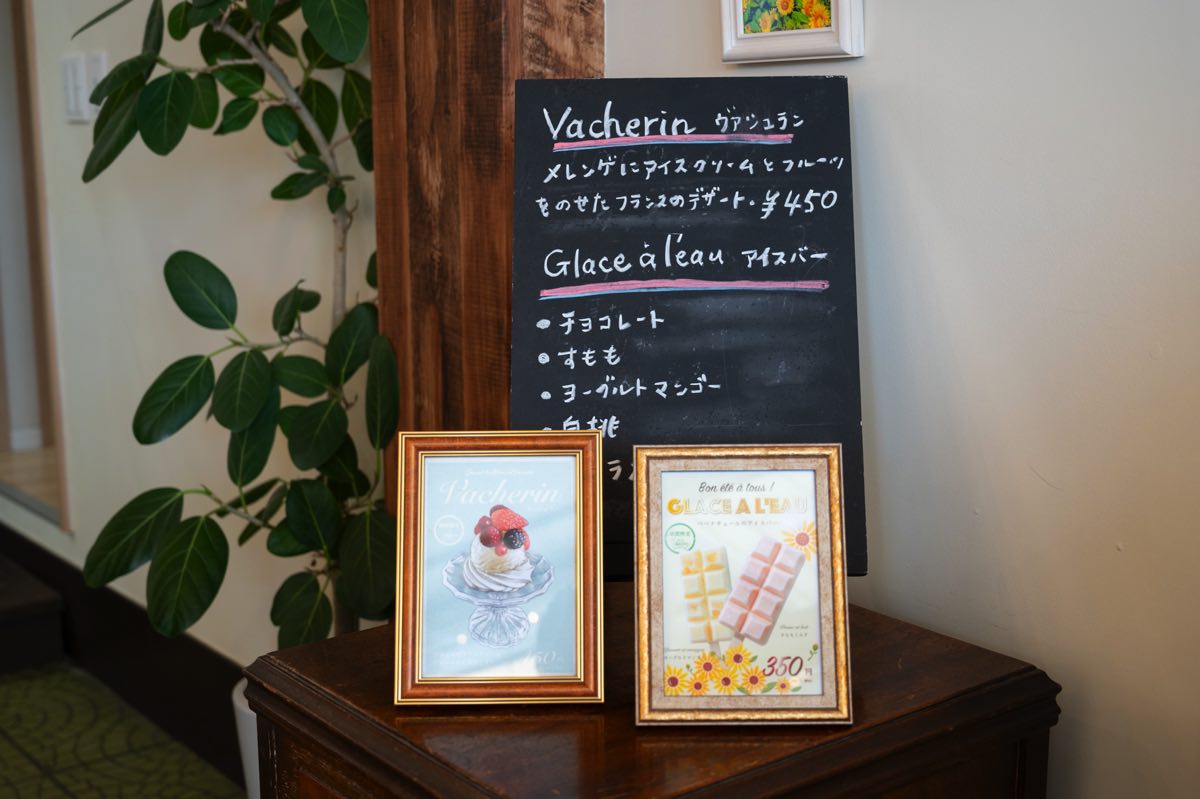 Vacherin ヴァシュラン
メレンゲにアイスクリームとフルーツ
をのせたフランスのデザート・¥450
Glace à l'eau アイスバー
• チョコレート
• すもも
• ヨーグルトマンゴー
• 白桃
ラン
Vacherin
Bon été à tous !
GLACE A L'EAU
のアイスバー
350円